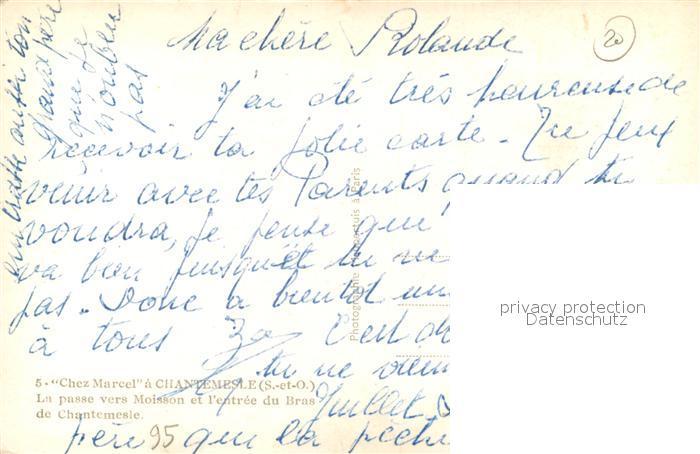 Ma chère Rolande
20
J'ai été très heureuse de
recevoir ta jolie carte. Tu peux
venir avec tes Parents quand tu
voudra, je pense que
va bien puisque tu ne
pas. Donc a bientot un
à tous
C'est
tu ne
Juillet
père que la pêche
95
embrasse aussi ton
grand père
que je
n'oublie
pas
5 - "Chez Marcel" à CHANTEMESLE (S.-et-O.)
La passe vers Moisson et l'entrée du Bras
de Chantemesle.
Photographie à Paris
privacy protection
Datenschutz